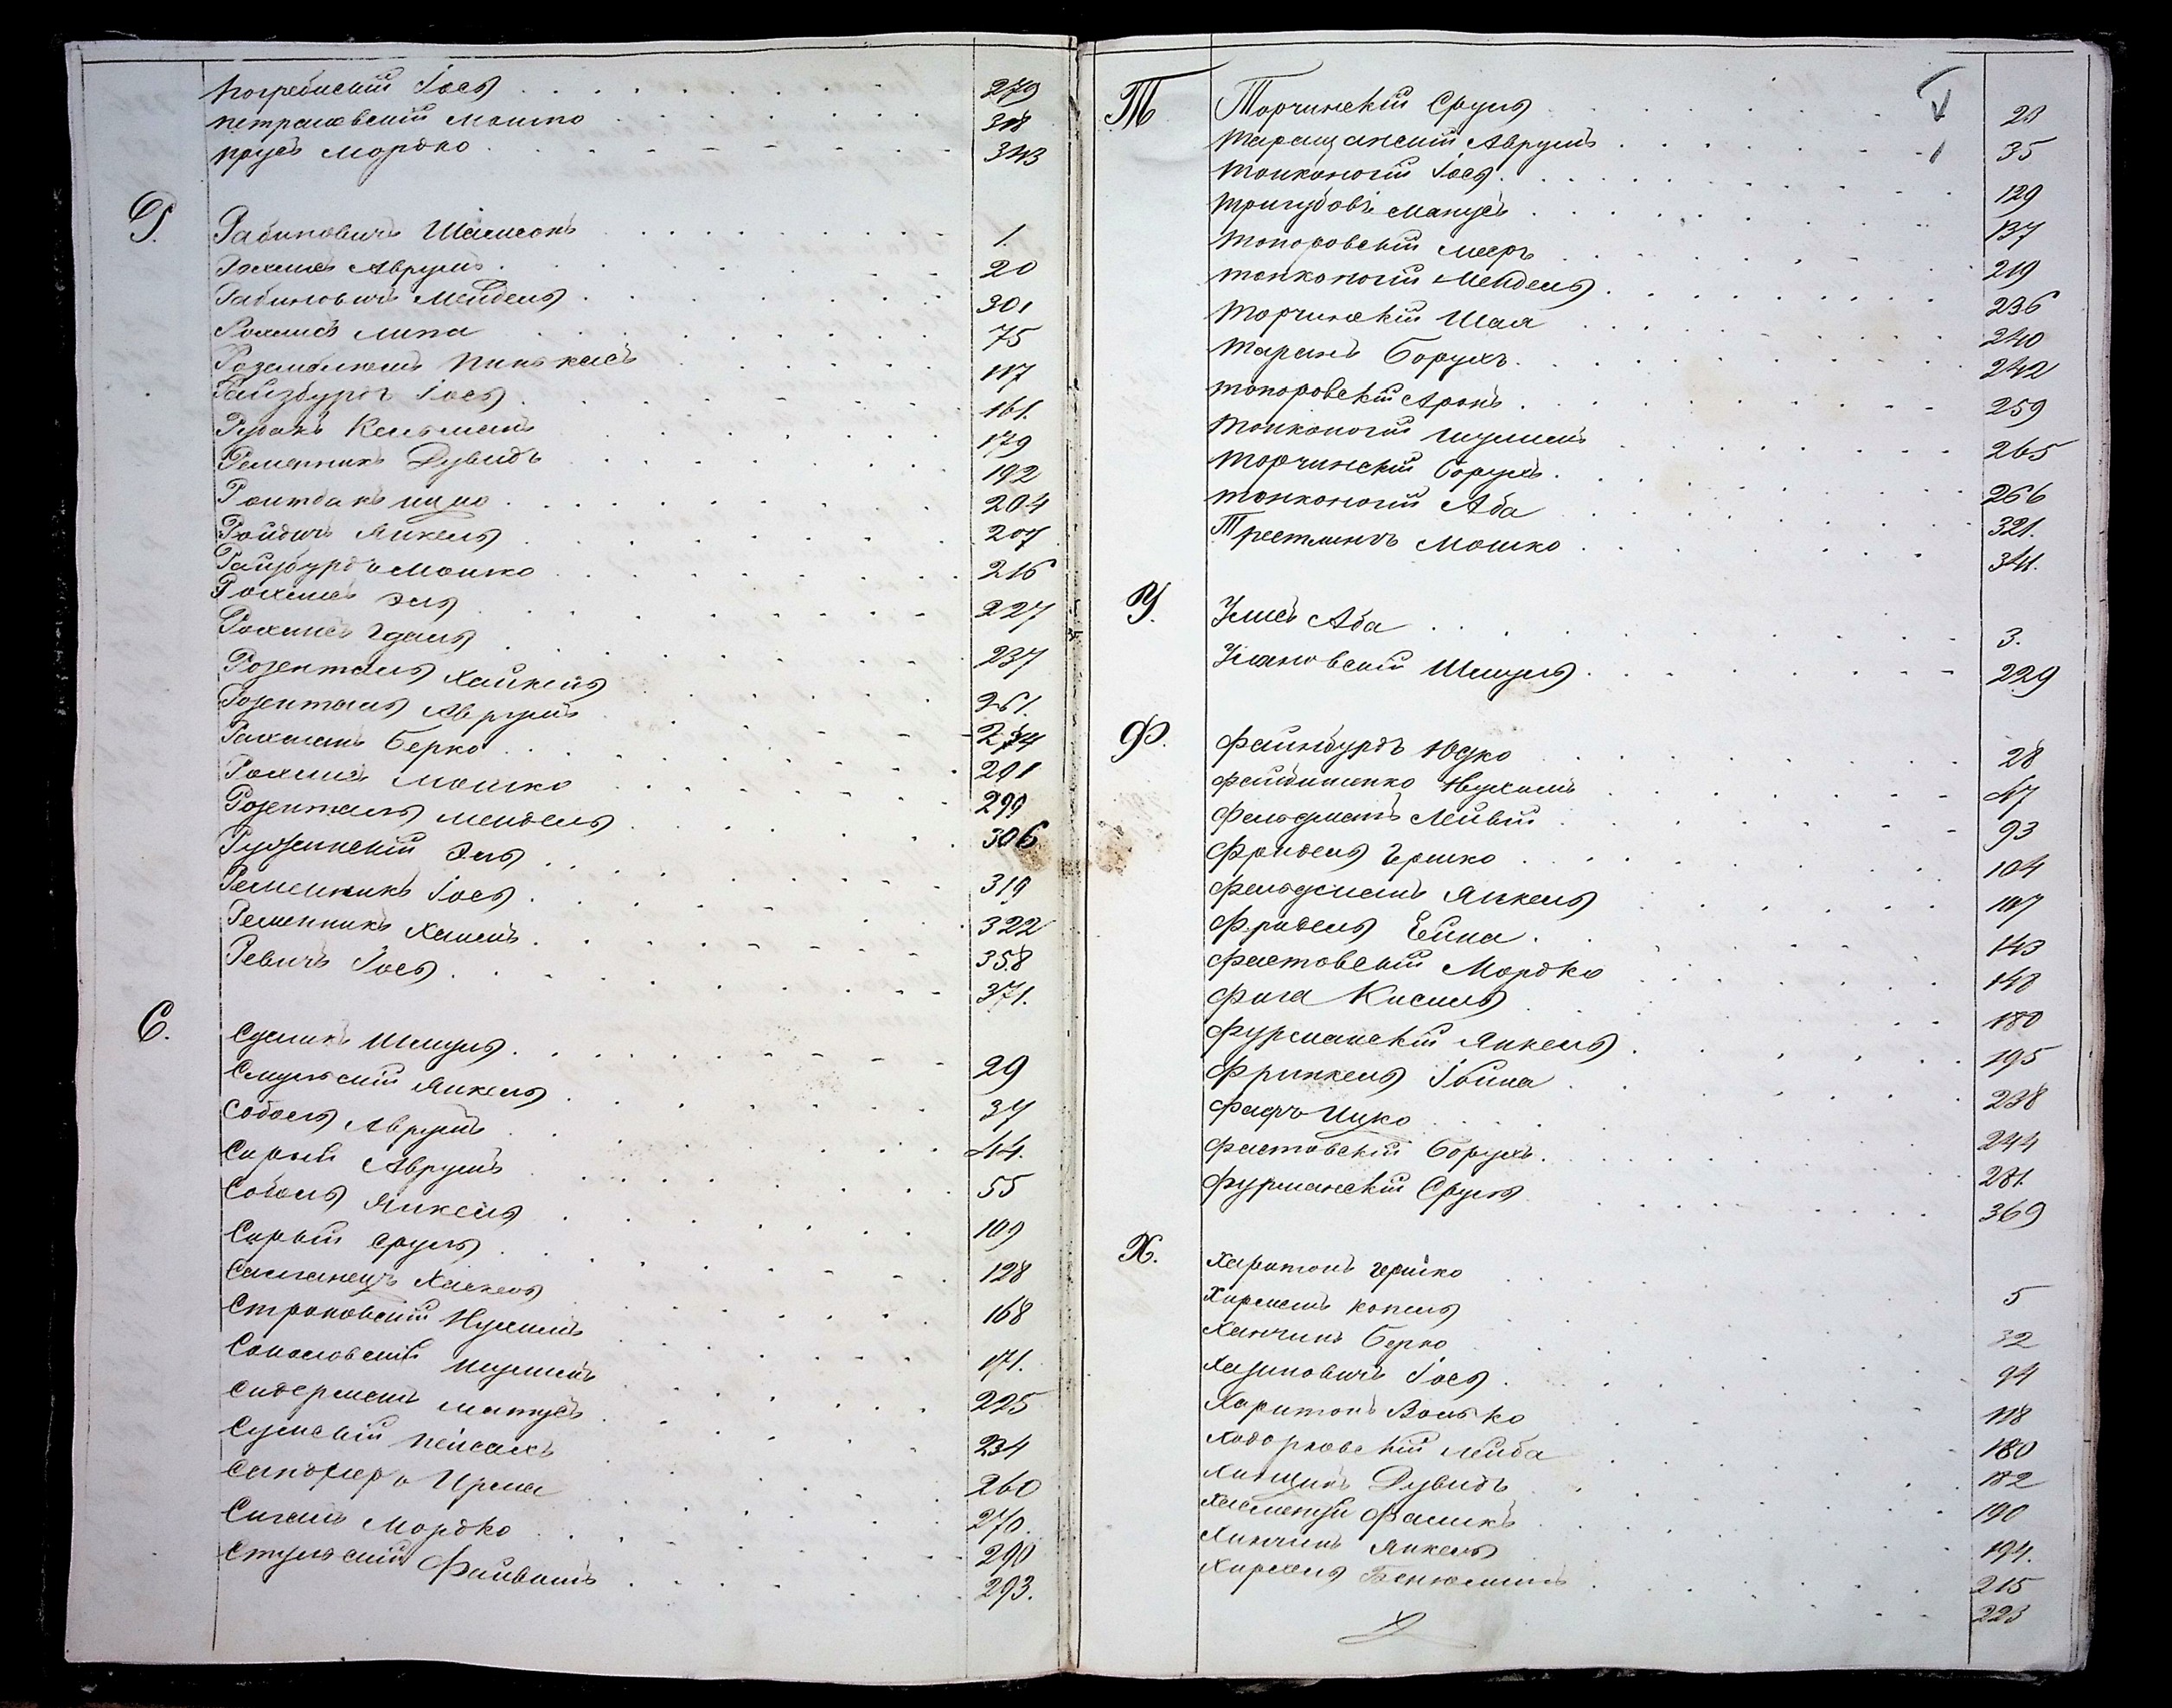 Погребискій Іось 279
Петраковскій Мошко 318
Прусъ Мордко 343
Р.
Рабиновичъ Шамсонъ 1.
Рохлисъ Аврумъ 20
Рабиновичъ Мендель 301
Рохлисъ Липа 75
Розенблюмъ Пинькасъ 117
Райзбургъ Іось 161.
Кельманъ 179
Ременникъ Дувидъ 192
Ройтбакъ Ицко 204
Ройдичъ Янкель 207
Райзбургъ Мошко 216
Рохлисъ Эль 227
Рохлисъ Гдаль 237
Розенталь Хайкель 261.
Розенталь Аврумъ 274
Рахманъ Берко 291
Рохлисъ Мошко 299
Розенталь Мендель 306
Ружинскій Эль 319
Ременникъ Іось 322
Ременникъ Хаимъ 358
Ревичъ Іось 371.
С.
Сумикъ Шмуль 29
Смульскій Янкель 37
Соболь Аврумъ 44.
Сирый Аврумъ 55
Соболь Янкель 109
Сирый Сруль 128
Салганецъ Хаскель 168
Строковскій Нухимъ 171.
Соколовскій Шулимъ 225
Сидерманъ Матусъ 234
Сумскій Пейсахъ 260
Сандлеръ Ирма 270.
Сигалъ Мордко 290
Стульскій Файвишъ 293.
Т
Торчинскій Сруль 28
Таращанскій Аврумъ 35
Тонконогій Іось 129
Тригубовъ Манусъ 137
Топоровскій Мееръ 219
Тонконогій Мендель 236
Торчинскій Шая 240
Таранъ Борухъ 242
Топоровскій Аронъ 259
Тонконогій Шулимъ 265
Торчинскій Борухъ 266
Тонконогій Аба 321.
Трестлингъ Мошко 341.
У.
Улисъ Аба 3.
Улановскій Шмуль 229
Ф.
Файнбургъ Юдко 28
Файбишенко Нухимъ 47
Фельдманъ Лейвій 93
Фридель Гершко 104
Фельдманъ Янкель 107
Фридель Ейна 143
Фастовскій Мордко 148
Фига Кисиль 180
Фурманскій Янкель 195
Фринкель Іойна 238
Фафъ Ицко 244
Фастовскій Борухъ 281.
Фурманскій Сруль 369
Х.
Харитонъ Гершко 5
Хирманъ Копель 32
Ханчинъ Берко 94
Хазиновичъ Іось 118
Харитонъ Волько 180
Ходорковскій Лейба 182
Дувидъ 190
Фаликъ 194.
Ханчинъ Янкель 215
Бенюминъ 223